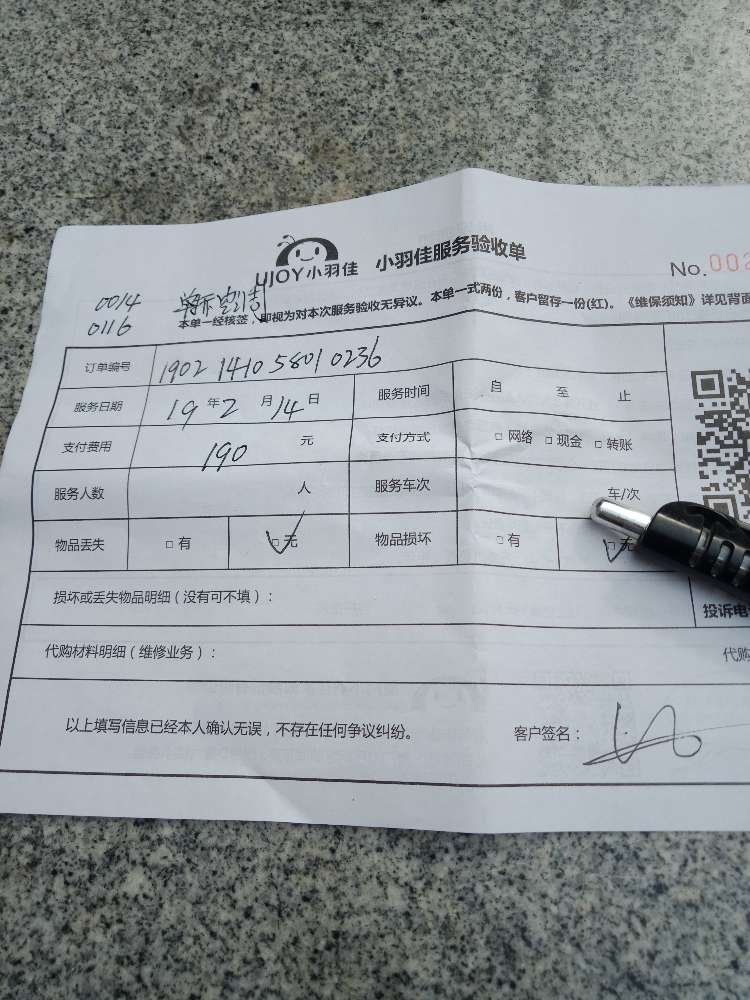 UJOY小羽佳 小羽佳服务验收单
No.002
0014
0116
本单一经核签，即视为对本次服务验收无异议。本单一式两份，客户留存一份(红)。《维保须知》详见背面
订单编号 1902 1410 5801 0236
服务日期 19年2月14日 服务时间 自 至 止
支付费用 190元 支付方式 □网络 □现金 □转账
服务人数 人 服务车次 车/次
物品丢失 □有 □无 物品损坏 □有 □无
损坏或丢失物品明细（没有可不填）：
投诉电
代购材料明细（维修业务）： 代购
以上填写信息已经本人确认无误，不存在任何争议纠纷。 客户签名：